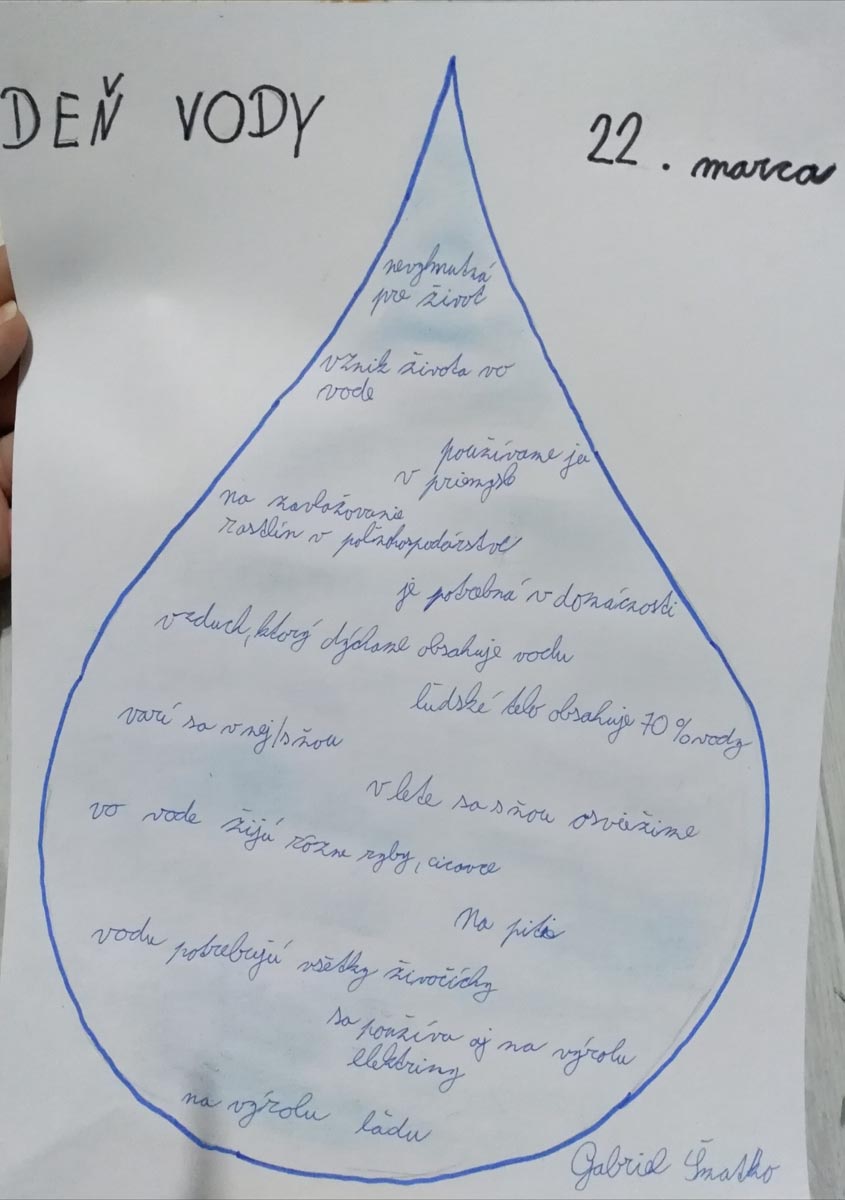 DEŇ VODY
22. marca
nevyhnutná
pre život
vznik života vo
vode
používame ju
v priemysle
na zavlažovanie
rastlín v poľnohospodárstve
je potrebná v domácnosti
vzduch, ktorý dýchame obsahuje vodu
ľudské telo obsahuje 70 % vody
varí sa v nej/s ňou
v lete sa s ňou osviežime
vo vode žijú rôzne ryby, cicavce
Na pitie
vodu potrebujú všetky živočíchy
sa používa aj na výrobu
elektriny
na výrobu ľadu
Gabriel Šmatko